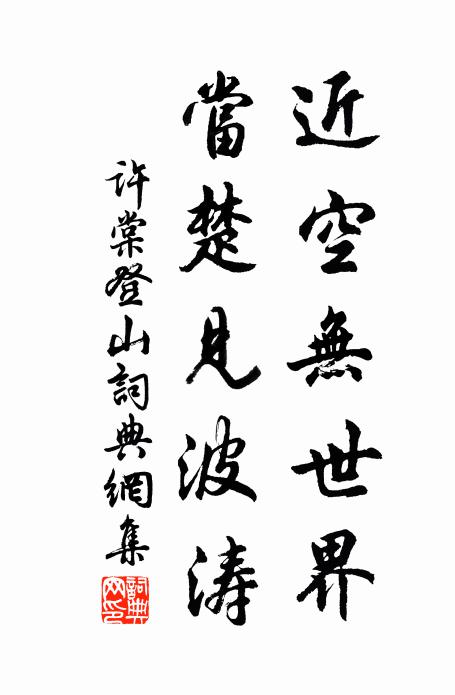 近空無世界
當楚見波濤
許棠登山詞典網集
詞典網印